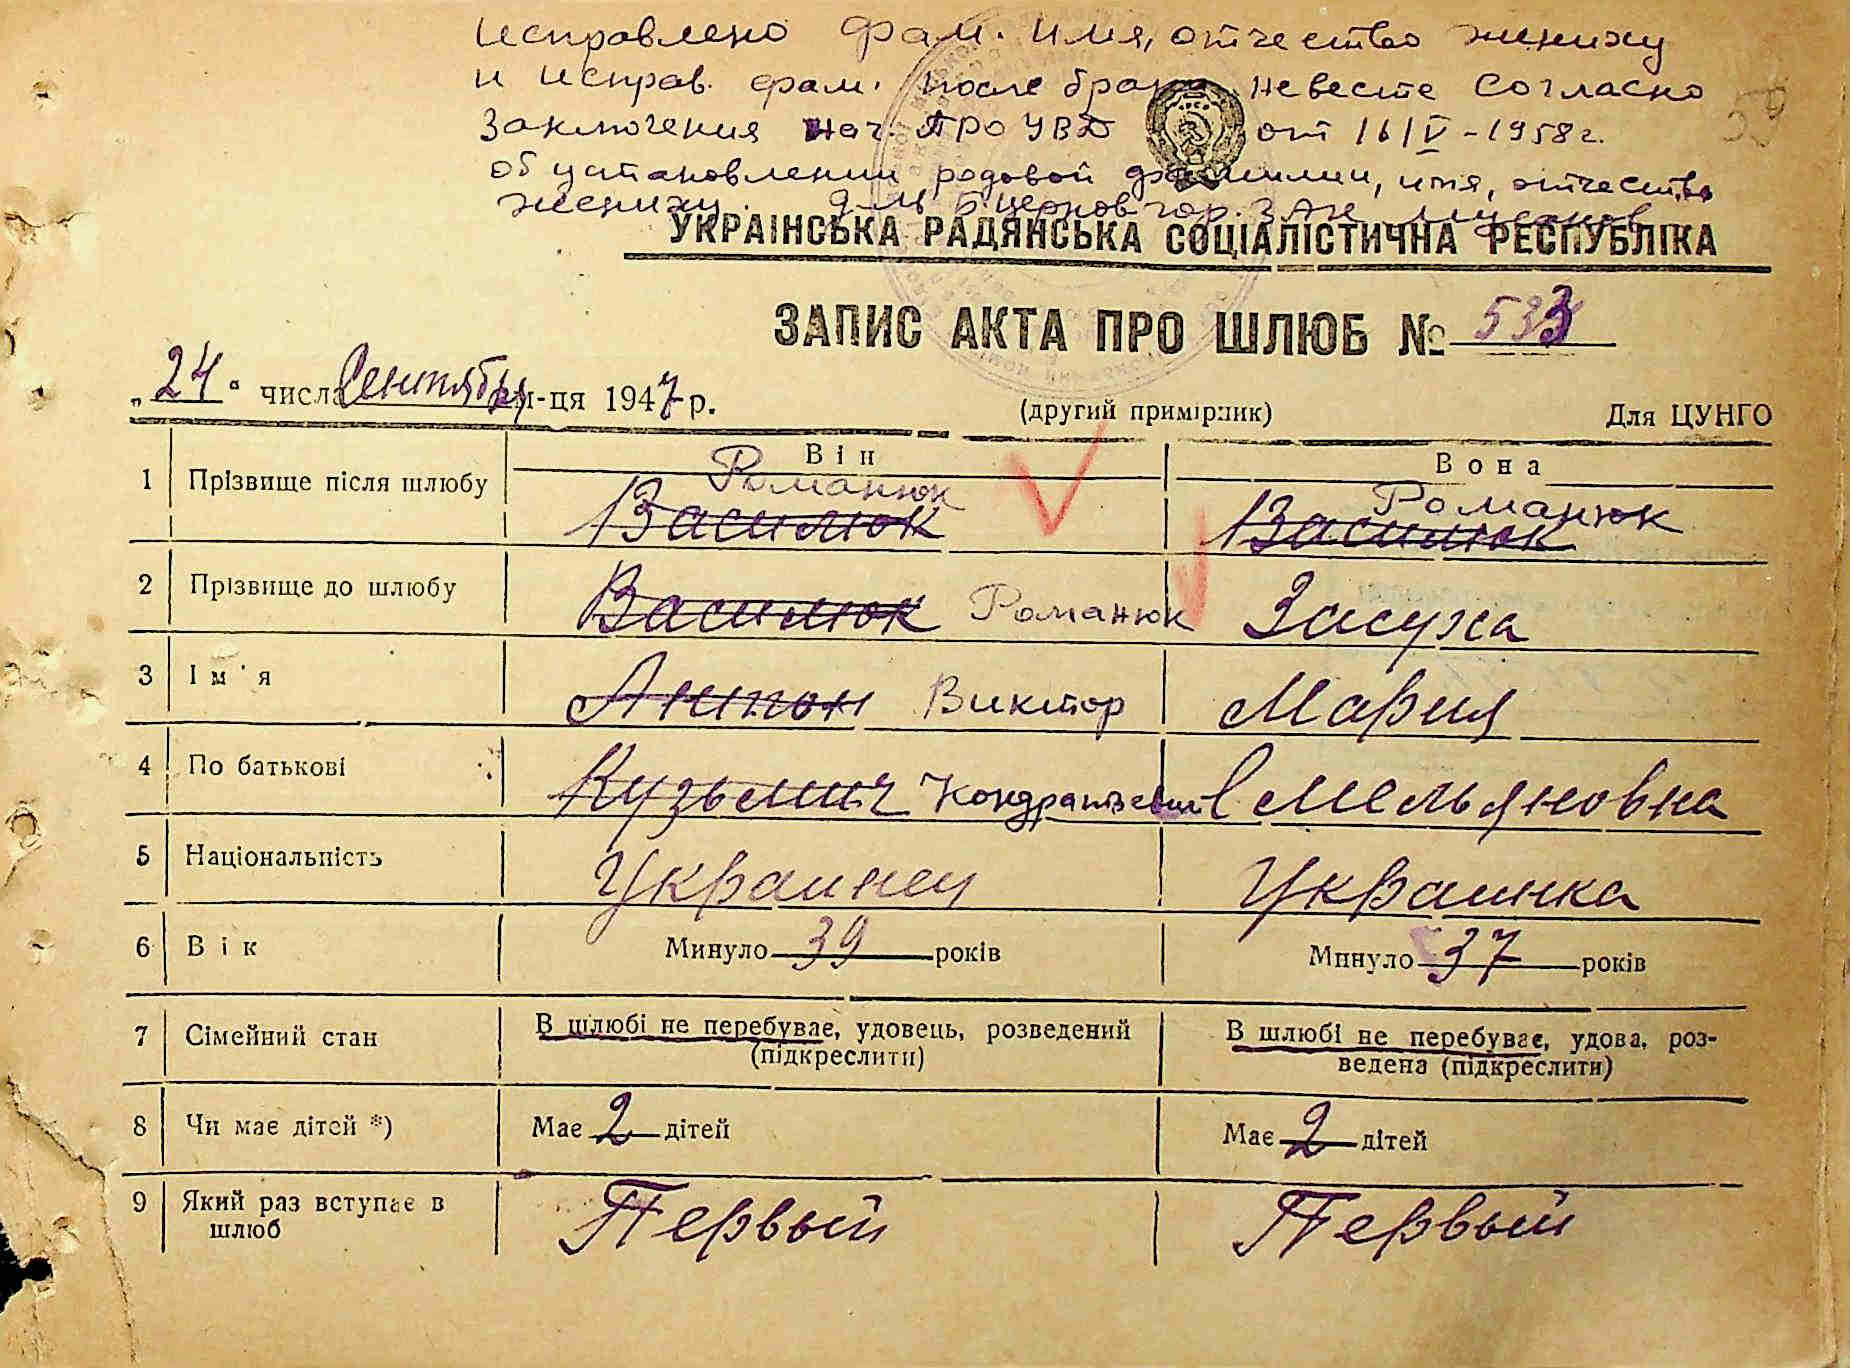 Исправлено фам. имя, отчество жениху
и исправ. фам. после брака невесте согласно
Заключения нач. ПРО УВД от 16/V-1958г.
об установлении родовой фамилии, имя, отчества
жениху. Б церков гор. ЗАГС
59
УКРАЇНСЬКА РАДЯНСЬКА СОЦІАЛІСТИЧНА РЕСПУБЛІКА
ЗАПИС АКТА ПРО ШЛЮБ № 533
„24“ числа Сентября м-ця 1947 р.
(другий примірник) Для ЦУНГО
Він Вона
1 Прізвище після шлюбу Романюк Романюк
Василюк Василюк
2 Прізвище до шлюбу Василюк Романюк Засуха
3 Ім'я Антон Виктор Мария
4 По батькові Кузьмич Кондратьевич Емельяновна
5 Національність Украинец Украинка
6 Вік Минуло 39 років Минуло 37 років
7 Сімейний стан В шлюбі не перебуває, удовець, розведений В шлюбі не перебуває, удова, роз-
(підкреслити) ведена (підкреслити)
8 Чи має дітей *) Має 2 дітей Має 2 дітей
9 Який раз вступає в Первый Первый
шлюб